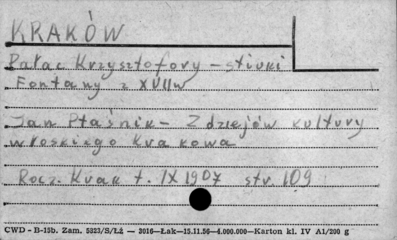 KRAKÓW
Pałac Krzysztofory – stiuki
Fontany z XVIIw
Jan Ptaśnik – Z dziejów kultury
włoskiego Krakowa
Rocz. Krak t. IX 1907 str. 109
CWD - B-15b. Zam. 5323/S/Łż — 2016—Łak—15.11.56—4.000.000—Karton kl. IV A1/200 g